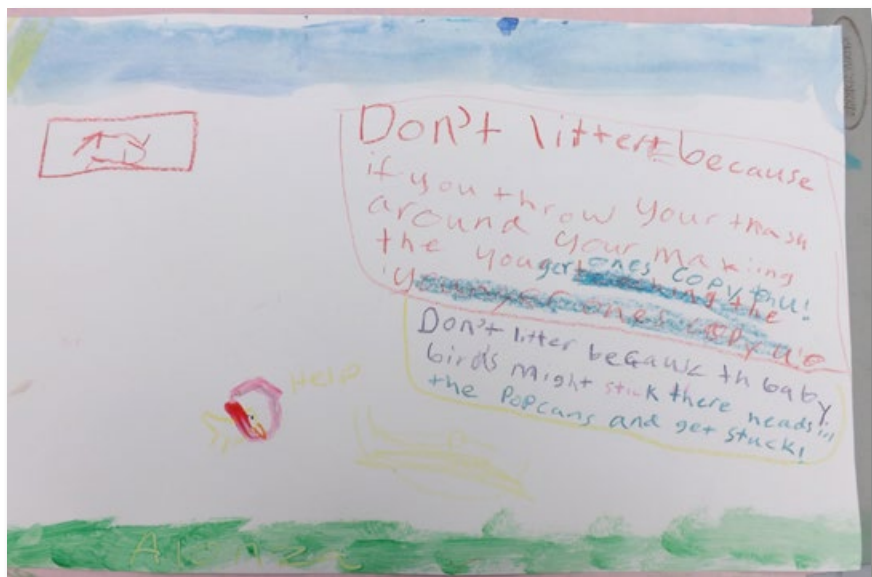 Don't litter because
if you throw your trash
around your making
the yougert ones copy you!
Don't litter because th baby
birds might stuck there heads in
the Popcans and get stuck!
Help